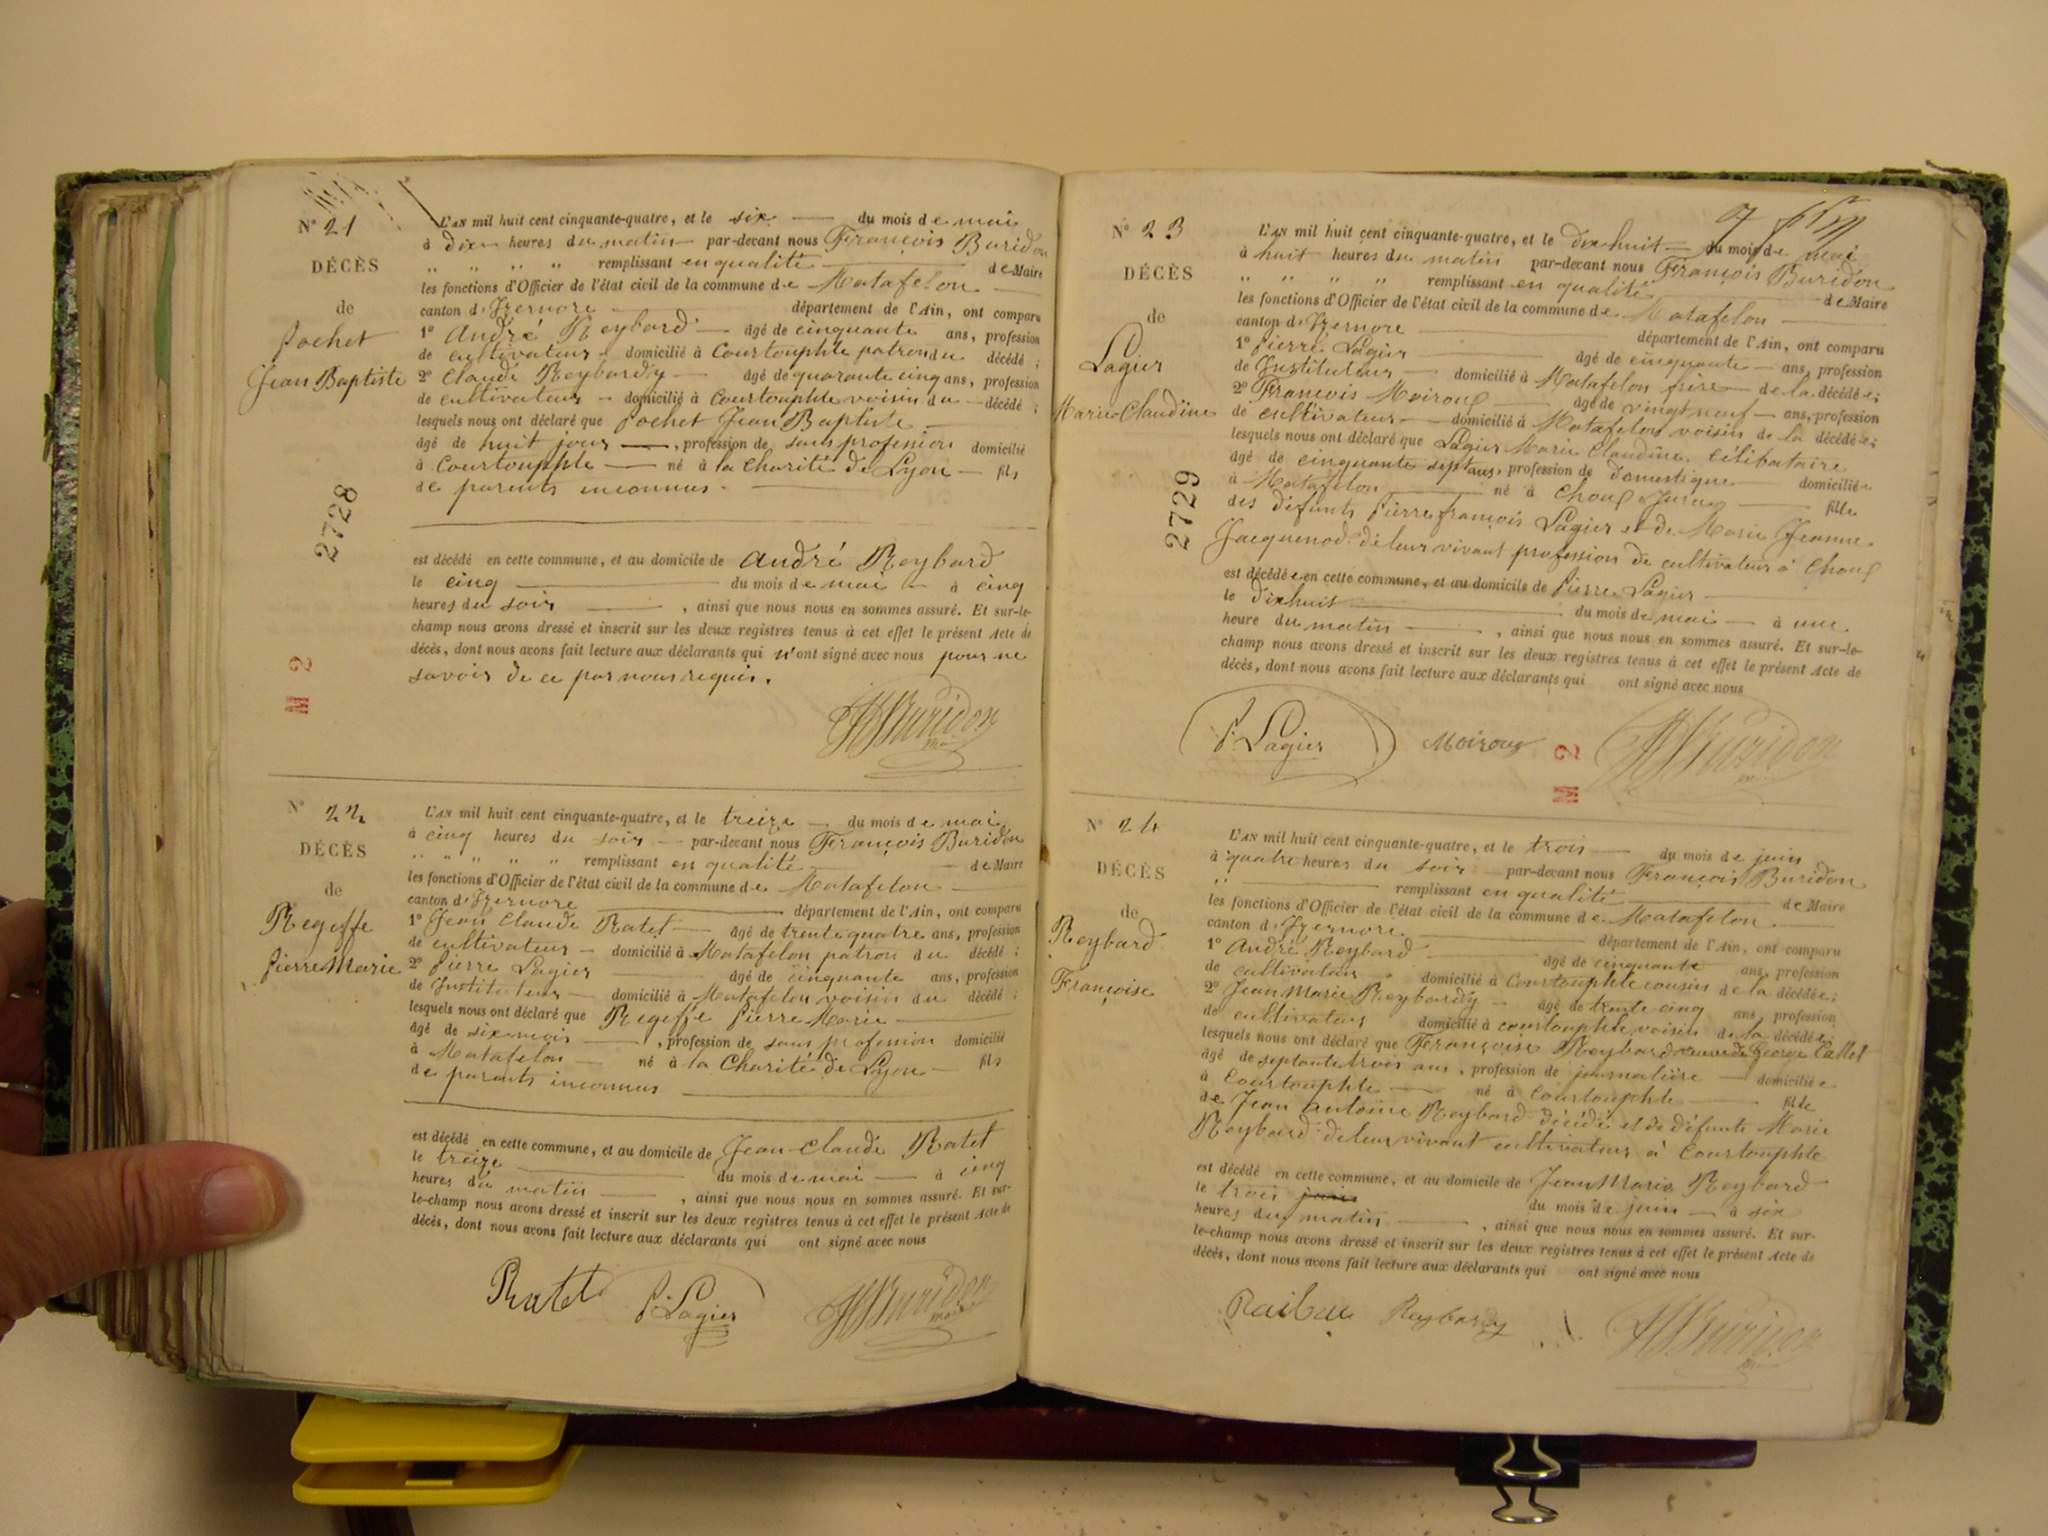 N° 21
DÉCÈS
de
Pochet
Jean Baptiste
2728
M 2
L'AN mil huit cent cinquante-quatre, et le six — du mois de mai
à dix heures du matin par-devant nous François Buridon
" " " " remplissant en qualité — de Maire
les fonctions d'Officier de l'état civil de la commune de Matafelon —
canton d'Izernore — département de l'Ain, ont comparu
1° André Reybard — âgé de cinquante ans, profession
de cultivateur — domicilié à Courtouphle patron du décédé ;
2° Claude Reybardy — âgé de quarante cinq ans, profession
de cultivateur — domicilié à Courtouphle voisin du — décédé ;
lesquels nous ont déclaré que Pochet Jean Baptiste —
âgé de huit jours —, profession de sans profession domicilié
à Courtouphle — né à la Charité de Lyon — fils
de parents inconnus. —
est décédé en cette commune, et au domicile de André Reybard
le cinq — du mois de mai — à cinq
heures du soir —, ainsi que nous nous en sommes assuré. Et sur-le-
champ nous avons dressé et inscrit sur les deux registres tenus à cet effet le présent Acte de
décès, dont nous avons fait lecture aux déclarants qui n'ont signé avec nous pour ne
savoir de ce par nous requis.
Buridon
N° 22
DÉCÈS
de
Regeffe
Pierre Marie
L'AN mil huit cent cinquante-quatre, et le treize — du mois de mai
à cinq heures du soir — par-devant nous François Buridon
" " " " " remplissant en qualité — de Maire
les fonctions d'Officier de l'état civil de la commune de Matafelon —
canton d'Izernore — département de l'Ain, ont comparu
1° Jean Claude Ratet — âgé de trente quatre ans, profession
de cultivateur — domicilié à Matafelon patron du décédé ;
2° Pierre Lagier — âgé de cinquante ans, profession
de Instituteur — domicilié à Matafelon voisin du décédé ;
lesquels nous ont déclaré que Regeffe Pierre Marie —
âgé de six mois —, profession de sans profession domicilié
à Matafelon — né à la Charité de Lyon — fils
de parents inconnus —
est décédé en cette commune, et au domicile de Jean-Claude Ratet
le treize — du mois de mai — à cinq
heures du matin —, ainsi que nous nous en sommes assuré. Et sur-
le-champ nous avons dressé et inscrit sur les deux registres tenus à cet effet le présent Acte de
décès, dont nous avons fait lecture aux déclarants qui ont signé avec nous
Ratet P. Lagier Buridon
N° 23
DÉCÈS
de
Lagier
Marie Claudine
2729
M 2
L'AN mil huit cent cinquante-quatre, et le dix huit — du mois de mai
à huit heures du matin par-devant nous François Buridon
" " " " remplissant en qualité — de Maire
les fonctions d'Officier de l'état civil de la commune de Matafelon —
canton d'Izernore — département de l'Ain, ont comparu
1° Pierre Lagier — âgé de cinquante — ans, profession
de Instituteur — domicilié à Matafelon frère — de la décédée ;
2° François Moiroux — âgé de vingt neuf — ans, profession
de cultivateur — domicilié à Matafelon voisin de la décédée ;
lesquels nous ont déclaré que Lagier Marie Claudine, célibataire
âgé de cinquante sept ans, profession de domestique — domiciliée
à Matafelon — né à Choux Jura — fille
des défunts Pierre françois Lagier et de Marie Jeanne
Jacquenod de leur vivant profession de cultivateur à Choux
est décédée en cette commune, et au domicile de Pierre Lagier —
le dix huit — du mois de mai — à une
heure du matin —, ainsi que nous nous en sommes assuré. Et sur-le-
champ nous avons dressé et inscrit sur les deux registres tenus à cet effet le présent Acte de
décès, dont nous avons fait lecture aux déclarants qui ont signé avec nous
P. Lagier Moiroux Buridon
N° 24
DÉCÈS
de
Reybard
Françoise
L'AN mil huit cent cinquante-quatre, et le trois — du mois de juin
à quatre heures du soir par-devant nous François Buridon
" — remplissant en qualité — de Maire
les fonctions d'Officier de l'état civil de la commune de Matafelon —
canton d'Izernore — département de l'Ain, ont comparu
1° André Reybard — âgé de cinquante ans, profession
de cultivateur domicilié à Courtouphle cousin de la décédée ;
2° Jean Marie Reybardy — âgé de trente cinq ans, profession
de cultivateur domicilié à courtouphle voisin de la décédée ;
lesquels nous ont déclaré que Françoise Reybard veuve de George Callet
âgé de septante trois ans, profession de journalière — domiciliée
à Courtouphle — né à Courtouphle — fille
de Jean antoine Reybard décédé et de défunte Marie
Reybard de leur vivant cultivateur à Courtouphle
est décédé en cette commune, et au domicile de Jean Marie Reybard
le trois juin du mois de juin — à six
heures du matin —, ainsi que nous nous en sommes assuré. Et sur-
le-champ nous avons dressé et inscrit sur les deux registres tenus à cet effet le présent Acte de
décès, dont nous avons fait lecture aux déclarants qui ont signé avec nous
Reybardy Buridon